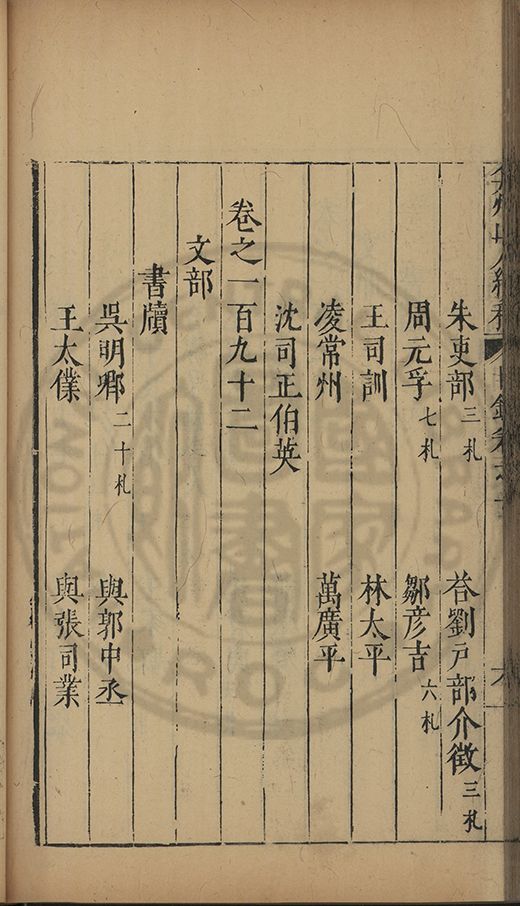 弇州山人續稿
目錄卷之十
朱吏部三札　荅劉戶部介徵三札
周元孚七札　鄒彥吉六札
王司訓　林太平
凌常州　萬廣平
沈司正伯英
卷之一百九十二
文部
書牘
吳明卿二十札　與郭中丞
王太僕　與張司業